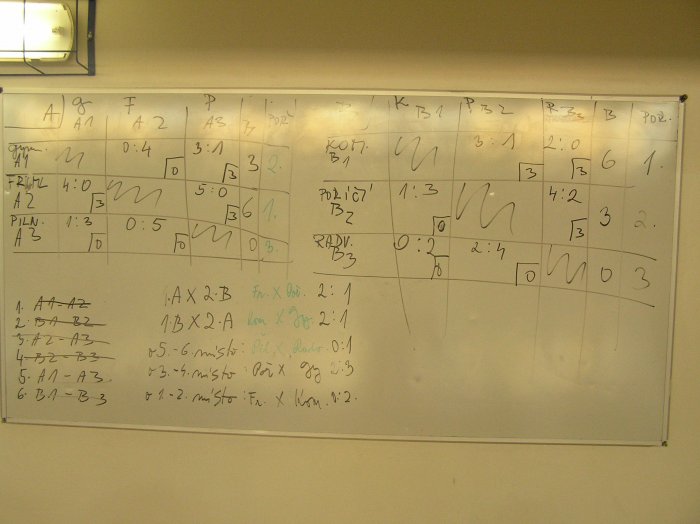 A g F P B POŘ.
A1 A2 A3
gym. 0:4 3:1
A1 0 3 3 2.
FRÝDL 4:0 5:0
A2 3 3 6 1.
PILN. 1:3 0:5
A3 0 0 0 3.
B K P R B POŘ.
B1 B2 B3
KOM. 3:1 2:0
B1 3 3 6 1.
POŘÍČÍ 1:3 4:2
B2 0 3 3 2.
RADV. 0:2 2:4
B3 0 0 0 3
1. A1-A2
2. B1-B2
3. A2-A3
4. B2-B3
5. A1-A3
6. B1-B3
1.A X 2.B Fr. X Poř. 2:1
1.B X 2.A Kom X gy. 2:1
o 5.-6. místo: Pil X Radv. 0:1
o 3.-4. místo: Poř X gy 2:3
o 1.-2. místo: Fr. X Kom. 0:2.